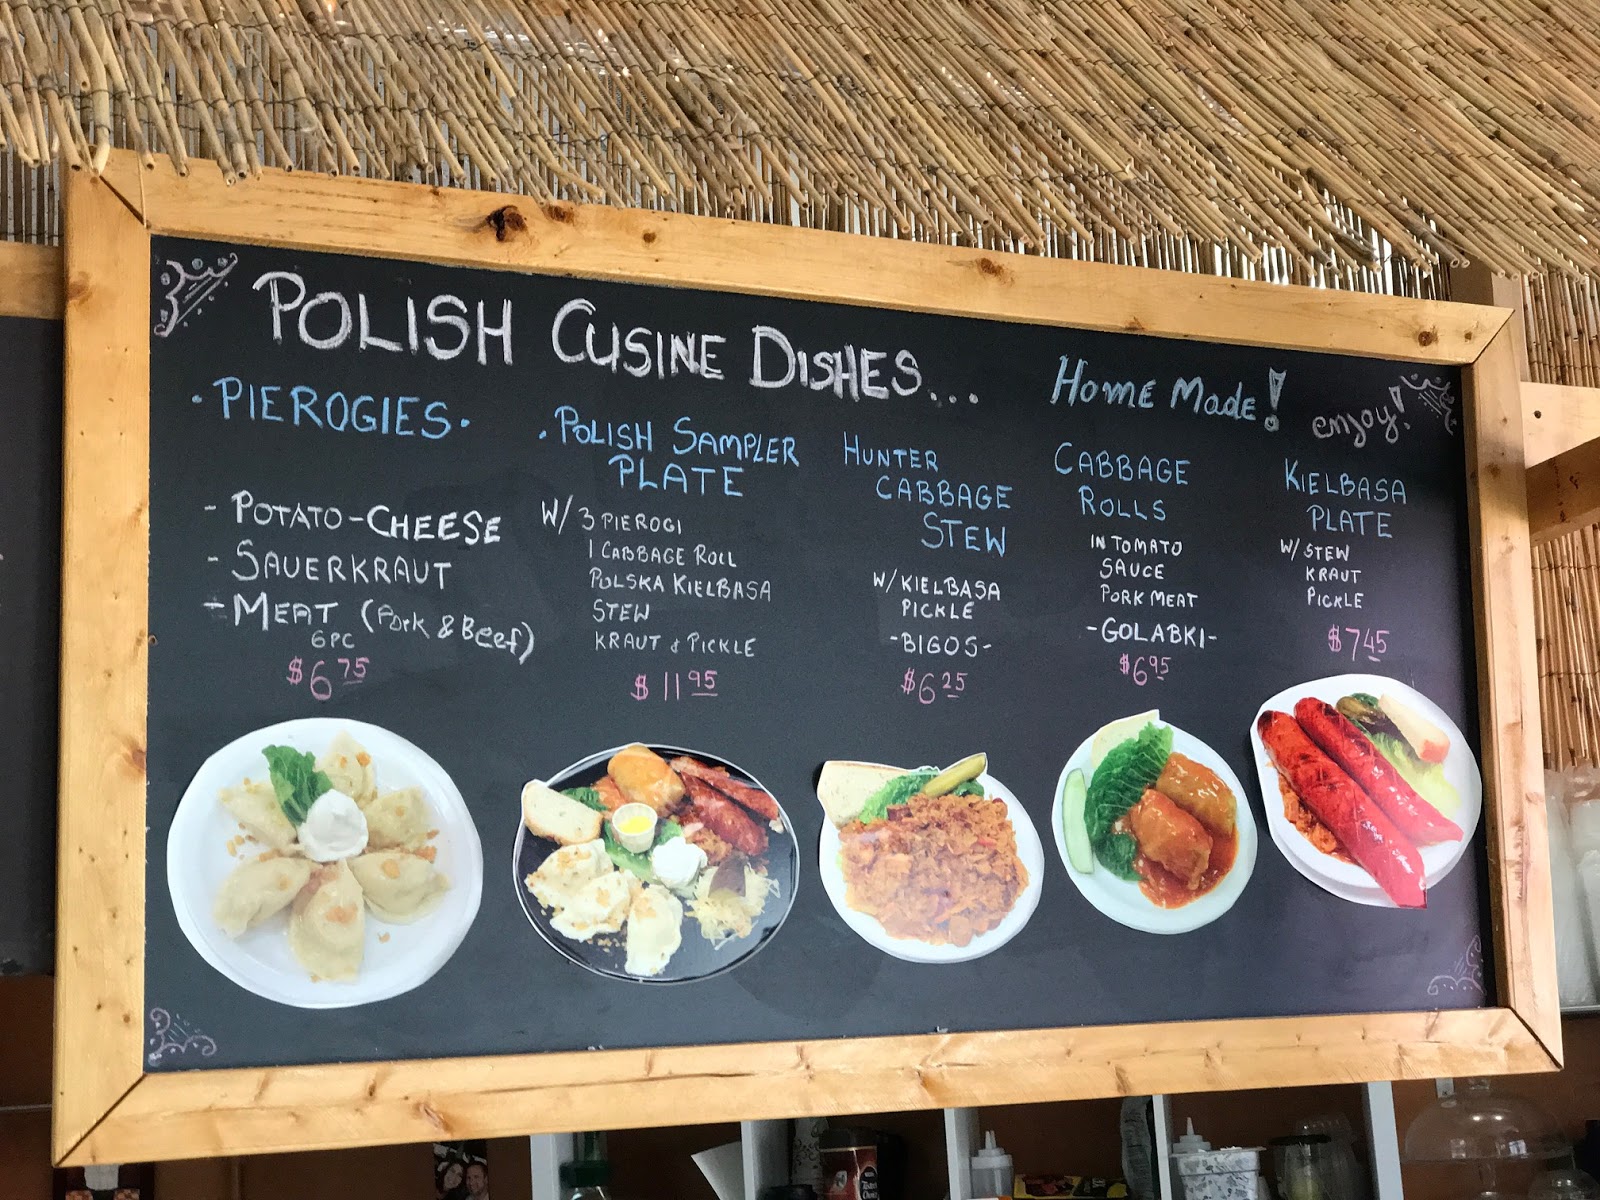 POLISH CUSINE DISHES...
HOME MADE!
enjoy!
· PIEROGIES ·
- POTATO-CHEESE
- SAUERKRAUT
- MEAT (Pork & Beef)
6 PC
$6.75
· POLISH SAMPLER
PLATE
W/ 3 PIEROGI
1 CABBAGE ROLL
POLSKA KIELBASA
STEW
KRAUT & PICKLE
$11.95
HUNTER
CABBAGE
STEW
W/ KIELBASA
PICKLE
- BIGOS -
$6.25
CABBAGE
ROLLS
IN TOMATO
SAUCE
PORK MEAT
- GOLABKI -
$6.95
KIELBASA
PLATE
W/ STEW
KRAUT
PICKLE
$7.45